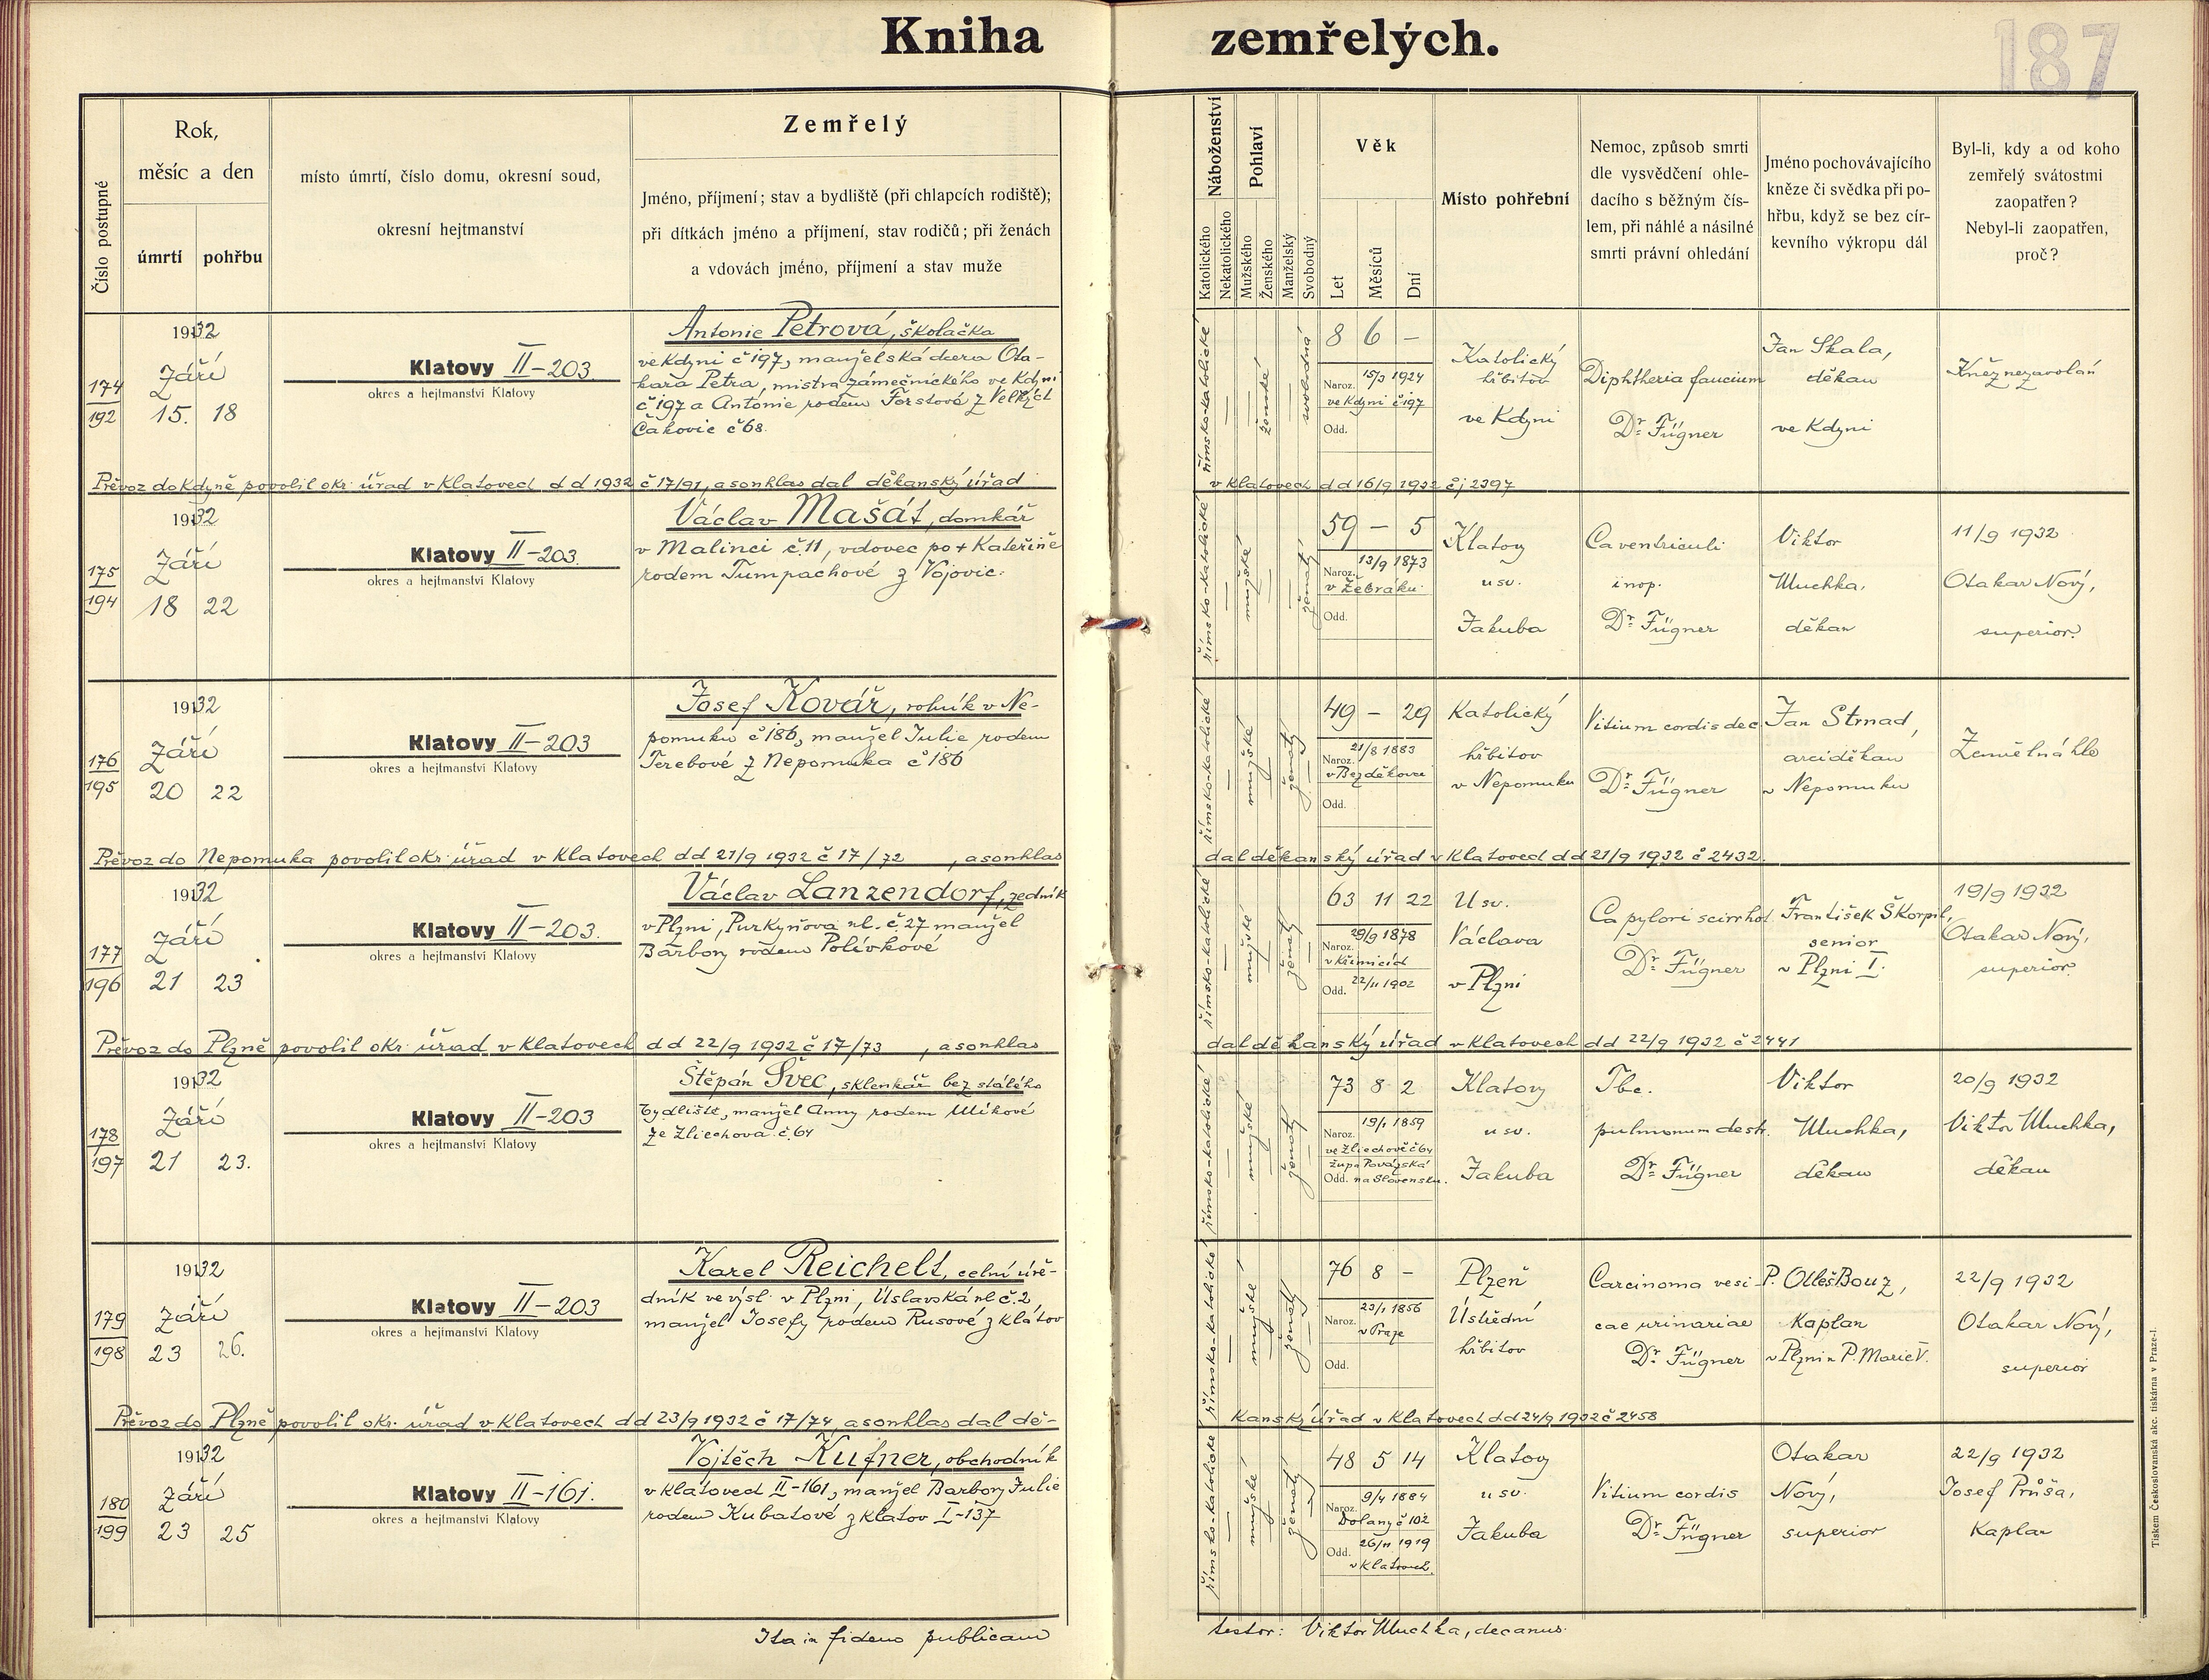 Kniha zemřelých.
187
Číslo postupné
Rok,
měsíc a den
úmrtí
pohřbu
místo úmrtí, číslo domu, okresní soud,
okresní hejtmanství
Zemřelý
Jméno, příjmení; stav a bydliště (při chlapcích rodiště);
při dítkách jméno a příjmení, stav rodičů; při ženách
a vdovách jméno, příjmení a stav muže
Náboženství
Katolického
Nekatolického
Pohlaví
Mužského
Ženského
Manželský
Svobodný
Věk
Let
Měsíců
Dní
Místo pohřební
Nemoc, způsob smrti
dle vysvědčení ohle-
dacího s běžným čís-
lem, při náhlé a násilné
smrti právní ohledání
Jméno pochovávajícího
kněze či svědka při po-
hřbu, když se bez cír-
kevního výkropu dál
Byl-li, kdy a od koho
zemřelý svátostmi
zaopatřen?
Nebyl-li zaopatřen,
proč?
174
192
1932
Září
15. 18
Klatovy II-203.
okres a hejtmanství Klatovy
Antonie Petrová, školačka
ve Kdyni č 197, manželská dcera Ota-
kara Petra, mistra zámečnického ve Kdyni
č 197 a Antonie rodem Forstové z Velkých
Čakovic č 68.
římsko-katolické
ženské
svobodná
8 6 –
Naroz. 15/3 1924
ve Kdyni č 197
Odd.
Katolický
hřbitov
ve Kdyni
Diphtheria faucium
Dr Fügner
Jan Skala,
děkan
ve Kdyni
Kněz nezavolán
Převoz do Kdyně povolil okr. úřad v Klatovech d d 1932 č 17/91, a souhlas dal děkanský úřad
v Klatovech d d 16/9 1932 čj 2397
175
194
1932
Září
18 22
Klatovy II-203.
okres a hejtmanství Klatovy
Václav Mašát, domkář
v Malinci č. 11, vdovec po + Kateřině
rodem Tumpachové z Vojovic.
římsko-katolické
mužské
ženatý
59 – 5
Naroz. 13/9 1873
v Žebráku
Odd.
Klatovy
u sv.
Jakuba
Ca ventriculi
inop.
Dr Fügner
Viktor
Muchka,
děkan
11/9 1932
Otakar Nový,
superior.
176
195
1932
Září
20 22
Klatovy II-203
okres a hejtmanství Klatovy
Josef Kovář, rolník v Ne-
pomuku č 186, manžel Julie rodem
Terebové z Nepomuka č 186
římsko-katolické
mužské
ženatý
49 – 29
Naroz. 21/8 1883
v Bezděkovci
Odd.
Katolický
hřbitov
v Nepomuku
Vitium cordis dec.
Dr Fügner
Jan Strnad,
arciděkan
v Nepomuku
Zemřel náhle
Převoz do Nepomuka povolil okr. úřad v Klatovech dd 21/9 1932 č 17/72 , a souhlas
dal děkanský úřad v Klatovech dd 21/9 1932 č 2432.
177
196
1932
Září
21 23
Klatovy II-203.
okres a hejtmanství Klatovy
Václav Lanzendorf, zedník
v Plzni, Purkyňova ul. č 27 manžel
Barbory rodem Polívkové
římsko-katolické
mužské
ženatý
63 11 22
Naroz. 29/9 1878
v Křimicích
Odd. 22/11 1902
U sv.
Václava
v Plzni
Ca pylori scirrhot.
Dr Fügner
František Škorpil,
senior
v Plzni I.
19/9 1932
Otakar Nový,
superior
Převoz do Plzně povolil okr. úřad v Klatovech dd 22/9 1932 č 17/73 , a souhlas
dal děkanský úřad v Klatovech dd 22/9 1932 č 2441
178
197
1932
Září
21 23.
Klatovy II-203
okres a hejtmanství Klatovy
Štěpán Švec, sklenkář bez stálého
bydliště, manžel Anny rodem Mikové
ze Zliechova č. 64
římsko-katolické
mužské
ženatý
73 8 2
Naroz. 19/1 1859
ve Zliechově č 64
župa Považská
Odd. na Slovensku.
Klatovy
u sv.
Jakuba
Tbc.
pulmonum destr.
Dr Fügner
Viktor
Muchka,
děkan
20/9 1932
Viktor Muchka,
děkan
179
198
1932
Září
23 26.
Klatovy II-203
okres a hejtmanství Klatovy
Karel Reichelt, celní úře-
dník ve výsl. v Plzni, Úslavská ul č. 2,
manžel Josefy rodem Rusové z Klatov
římsko-katolické
mužské
ženatý
76 8 –
Naroz. 23/1 1856
v Praze
Odd.
Plzeň
Ústřední
hřbitov
Carcinoma vesi-
cae urinariae
Dr Fügner
P. Bouz,
Kaplan
v Plzni u P. Marie V.
22/9 1932
Otakar Nový,
superior
Převoz do Plzně povolil okr. úřad v Klatovech dd 23/9 1932 č 17/74, a souhlas dal dě-
kanský úřad v Klatovech dd 24/9 1932 č 2458
180
199
1932
Září
23 25
Klatovy II-161.
okres a hejtmanství Klatovy
Vojtěch Kufner, obchodník
v Klatovech II-161, manžel Barbory Julie
rodem Kubatové z Klatov I-137
římsko-katolické
mužské
ženatý
48 5 14
Naroz. 9/4 1884
Dolany č 102
Odd. 26/11 1919
v Klatovech.
Klatovy
u sv.
Jakuba
Vitium cordis
Dr Fügner
Otakar
Nový,
superior
22/9 1932
Josef Průša,
Kaplan
Ita in fidem publicam
testor: Viktor Muchka, decanus.
Tiskem Československá akc. tiskárna v Praze-I.